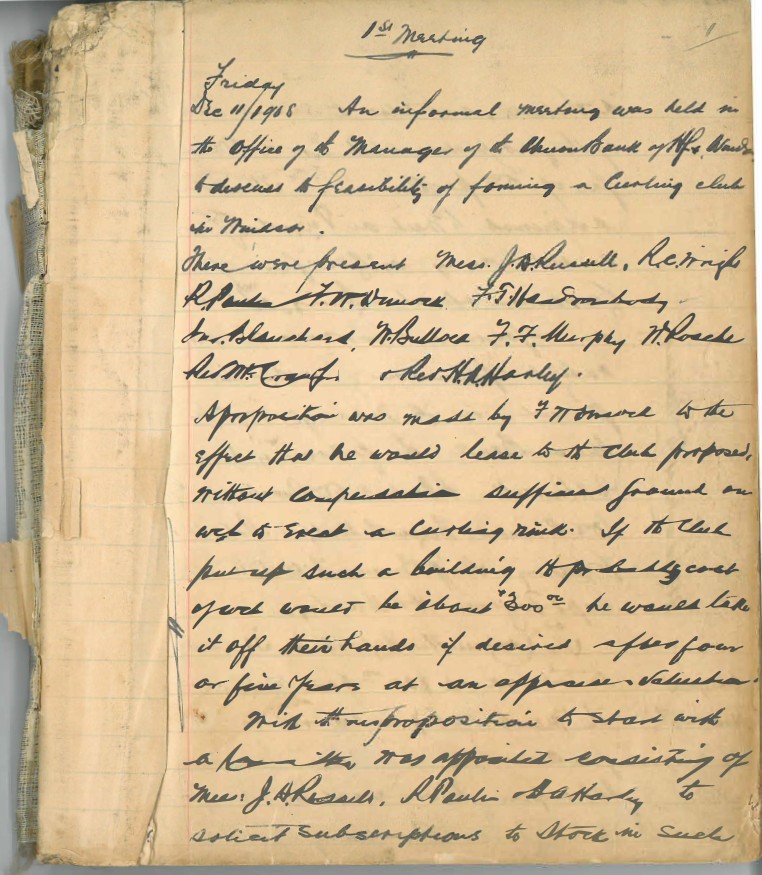 1st Meeting
1
Friday
Dec 11/1908 An informal meeting was held in
the Office of th Manager of th Union Bank of Hfx. Windsor
to discuss th feasibility of forming a Curling club
in Windsor.
There were present Mess. J.A. Russell, R.C. Wright
R. Paulin F.W. Dimock F.T.
Jno. Blanchard, W. Bullock F.F. Murphy W. Roache
Rev Mr. & Rev H.A. Harley.
A proposition was made by F W Dimock to the
effect that he would lease to th Club proposed,
without compensation sufficient ground on
wch to Erect a Curling rink. If th Club
put up such a building th probably cost
of wch would be about $300 00 he would take
it off their hands if desired after four
or five years at an appraised valuation.
With this proposition to start with
a Committee was appointed consisting of
Mess: J.A. Russell, R Paulin & H A Harley to
solicit subscriptions to Stock in such